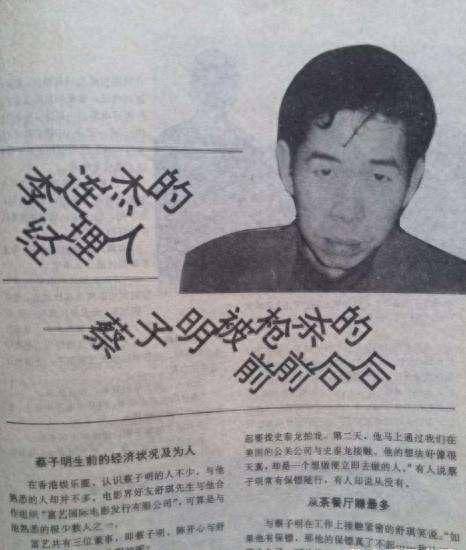 李连杰的
经理人
——蔡子明被枪杀的
前前后后
蔡子明生前的经济状况及为人
在香港娱乐圈，认识蔡子明的人不少，与他
熟悉的人却并不多。电影界好友舒琪先生与他合
作组织“富艺国际电影发行有限公司”，可算是与
他熟悉的极少数人之一。
富艺共有三位董事，即蔡子明、陈开心与舒
起要找史泰龙拍戏。第二天，他马上通过我们在
美国的公关公司与史泰龙接触。他的想法好像很
天真，却是一个想做便立即去做的人。”有人说蔡
子明常有保镖随行，有人却说从没有。
从茶餐厅赚最多
与蔡子明在工作上接触紧密的舒琪笑说：“如
果他有保镖，那他的保镖真了不起